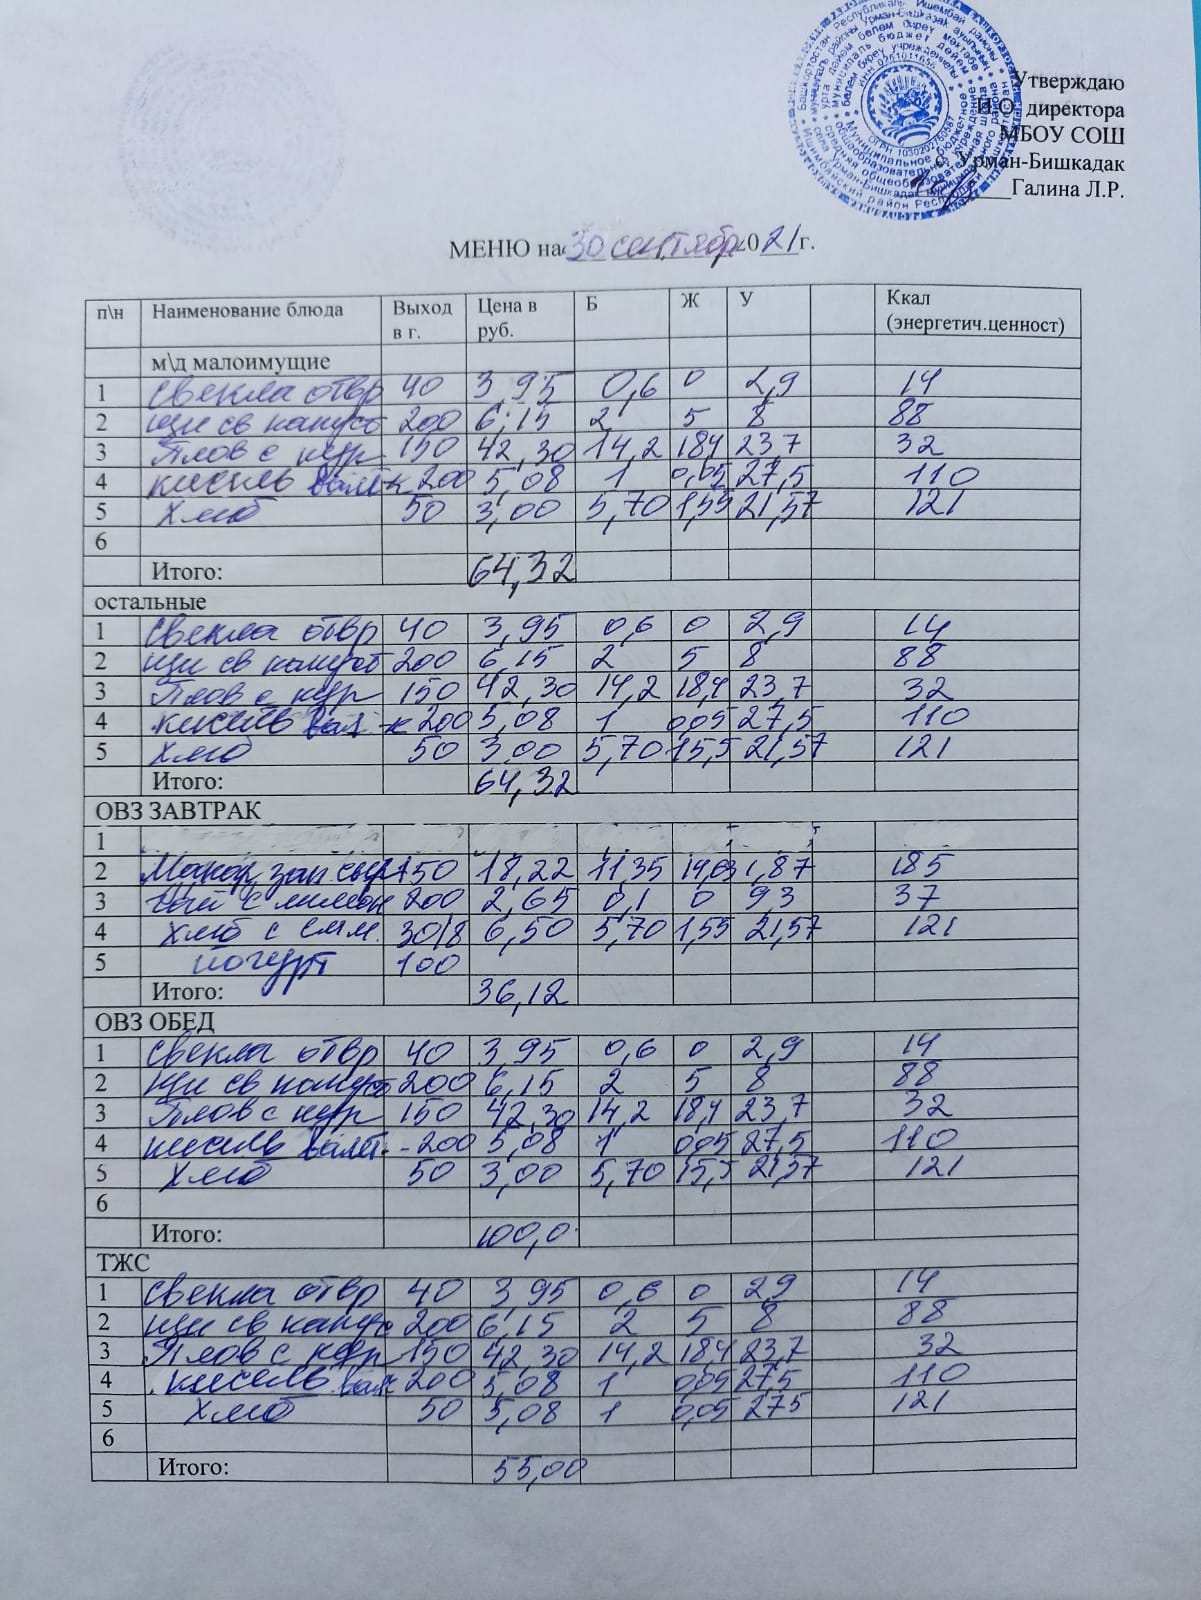 Утверждаю
И.О. директора
МБОУ СОШ
с. Урман-Бишкадак
Галина Л.Р.
МЕНЮ на 30 сентябр 2021 г.
п\н Наименование блюда Выход в г. Цена в руб. Б Ж У Ккал (энергетич.ценност)
м\д малоимущие
1 свекла отвр 40 3,95 0,6 0 2,9 14
2 щи св капуст 200 6,15 2 5 8 88
3 Плов с кур 150 42,30 14,2 18,4 23,7 32
4 кисель вит-к 200 5,08 1 0,05 27,5 110
5 хлеб 50 3,00 5,70 1,55 21,57 121
6
Итого: 64,32
остальные
1 свекла отвр 40 3,95 0,6 0 2,9 14
2 щи св капуст 200 6,15 2 5 8 88
3 Плов с кур 150 42,30 14,2 18,4 23,7 32
4 кисель 200 5,08 1 0,05 27,5 110
5 хлеб 50 3,00 5,70 15,5 21,57 121
Итого: 64,32
ОВЗ ЗАВТРАК
1
2 Макар зап сыр 150 18,22 11,35 14,63 1,87 185
3 чай с лимон 200 2,65 0,1 0 9,3 37
4 хлеб с слм. 30/8 6,50 5,70 1,55 21,57 121
5 йогурт 100
Итого: 36,12
ОВЗ ОБЕД
1 свекла отвр 40 3,95 0,6 0 2,9 14
2 щи св капуст 200 6,15 2 5 8 88
3 Плов с кур 150 42,30 14,2 18,4 23,7 32
4 кисель 200 5,08 1 0,05 27,5 110
5 хлеб 50 3,00 5,70 15,5 21,57 121
6
Итого: 100,0
ТЖС
1 свекла отвр 40 3,95 0,6 0 2,9 14
2 щи св капус 200 6,15 2 5 8 88
3 Плов с кур 150 42,30 14,2 18,4 23,7 32
4 кисель 200 5,08 1 0,05 27,5 110
5 хлеб 50 5,08 1 0,05 27,5 121
6
Итого: 55,00